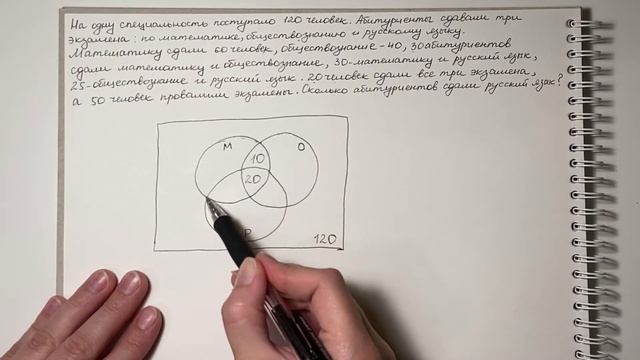 На одну специальность поступало 120 человек. Абитуриенты сдавали три
экзамена: по математике, обществознанию и русскому языку.
Математику сдали 60 человек, обществознание - 40, 30 абитуриентов
сдали математику и обществознание, 30 - математику и русский язык,
25 - обществознание и русский язык. 20 человек сдали все три экзамена,
а 50 человек провалили экзамены. Сколько абитуриентов сдали русский язык?
М О
10
20
Р
120